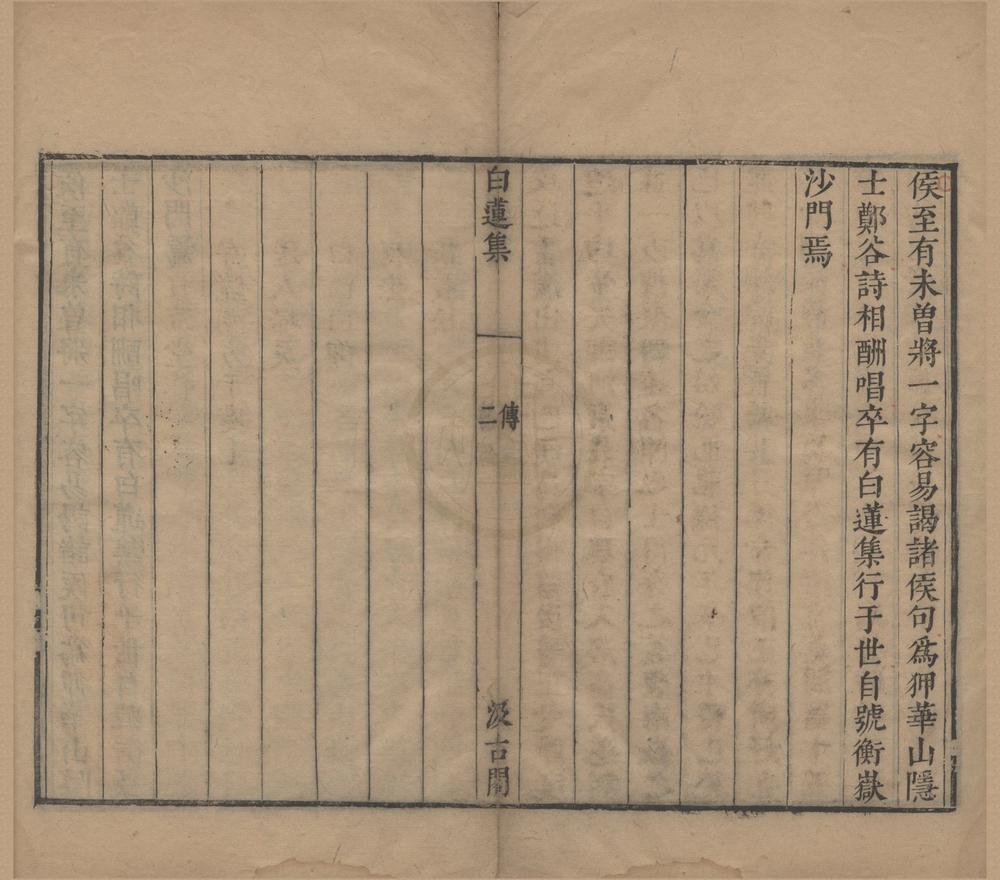 侯至有未曽將一字容易謁諸侯句爲狎華山隱
士鄭谷詩相酬唱卒有白蓮集行于世自號衡嶽
沙門焉
白蓮集
傳
二
汲古閣